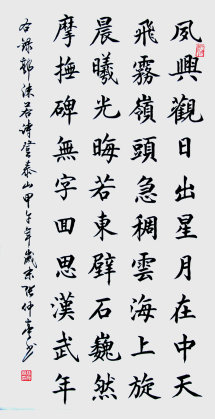 夙興觀日出星月在中天
飛霧嶺頭急稠雲海上旋
晨曦光晦若東壁石巍然
摩撫碑無字回思漢武年
右錄郭沫若詩登泰山甲午年歲末張仲亭書